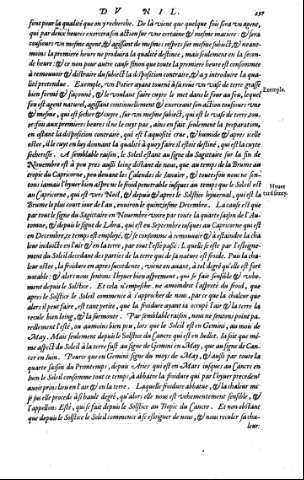 DV NIL. 237
sont pour la qualité que on y recherche. De là vient que quelque fois sera vn agent,
qui par deux heures exercera son action sur vne certaine & mesme matiere: & sera
tousiours vn mesme agent, & agissant de mesmes efforts sur mesme subiect, & neant-
moins la premiere heure ne produira la qualité destinee, mais seulement en la secon-
de heure: & ce non pour autre cause sinon que toute la premiere heure est consommee
à remouuoir & distraire du subiect la disposition contraire, & a y introduire la qua-
lité pretendue. Exemple, vn Potier ayant tourné à sa roüe vn vase de terre grasse
bien formé & façonné, & le voulant faire cuyre le met dans le four au feu, lequel
feu est agent naturel, agissant continuellement & exercant son action tousiours vne
& mesme, qui est seicher & cuyre, sur vn mesme subiect, qui est le vase de terre.
se fois aux premieres heures il ne le cuyt pas, ains en fait seulement la preparation,
en ostant la disposition contraire, qui est l'aquosité crue, & humide & apres icelle
ostee, il le cuyt en luy donnant la qualité à quoy faire il estoit destiné, qui est la cuyte
seicheresse. A semblable raison, le Soleil estant au signe du Sagittaire sur la fin de
Nouembre est à peu pres aussi loing distant de nous, que au temps de la Brume au
tropic du Capricorne, peu deuant les Calendes de Ianuier, & toutesfois nous ne sen-
tons iamais l'hyuer bien aspre ne le froid penetrable iusques au temps que le Soleil est
au Capricorne, qui est vers Noël, & depuis & apres le Solstice hyuernal, qui est la
Brume le plus court iour de l'an, enuiron le quinziesme Decembre. La cause est que
par tout le signe du Sagittaire en Nouembre voire par toute la quarte saison de l'Au-
tomne, & depuis le signe de Libra, qui est en Septembre iusques au Capricorne qui est
en Decembre, ce temps est employé, & se consomme à remouuoir, & à esteindre la cha-
leur induicte en l'air & en la terre, par tout l'esté passé. Laquelle se oste par l'eslongne-
ment du Soleil decedant des parties de la terre que de sa nature est froide. Puis la cha-
leur ostee, la froidure en apres succedente, vient en auant, à tel degré qu'elle est fort
notable: & alors nous sentons l'hyuer bien asprement, qui se fait sensible & vehe-
ment depuis le Solstice. Et cela n'empesche, ne amoindrit l'aspreté du froid, que
apres le Solstice le Soleil commence à s'approcher de nous, par ce que la chaleur que
alors il peut faire, est tant petite, que la froidure ayant ia occupé l'air & la terre la
recule bien loing, & la surmonte. Par semblable raison, nous ne sentons point pa-
reillement l'esté, ou aumoins bien peu, lors que le Soleil est en Gemini, au mois de
May. Mais seulement depuis le Solstice du Cancre qui est en Iuillet. Ia soit que mes-
me aspect du Soleil à la terre fust au signe de Gemini en May, que au signe de Can-
cer en Iuin. Pource que en Gemini signe du moys de May, & aussi par toute la
quarte saison du Printemps, depuis Aries qui est en Mars iusques au Cancre en
Iuin le Soleil consomme tout ce temps, à abbatre la froidure qui par l'hyuer precedent
auoit prins lieu en l'air & en la terre. Laquelle froidure abbatue, & la chaleur mi-
se sus elle procede à si haulx degré, qu'alors elle nous est vehementement sensible, &
l'appellons Esté, qui se fait depuis le Solstice au Tropic du Cancre. Et non obstant
que depuis le Solstice le Soleil commence à s'eslongner de nous, & nous reculer sa cha-
leur:
Exemple.
Hyuer